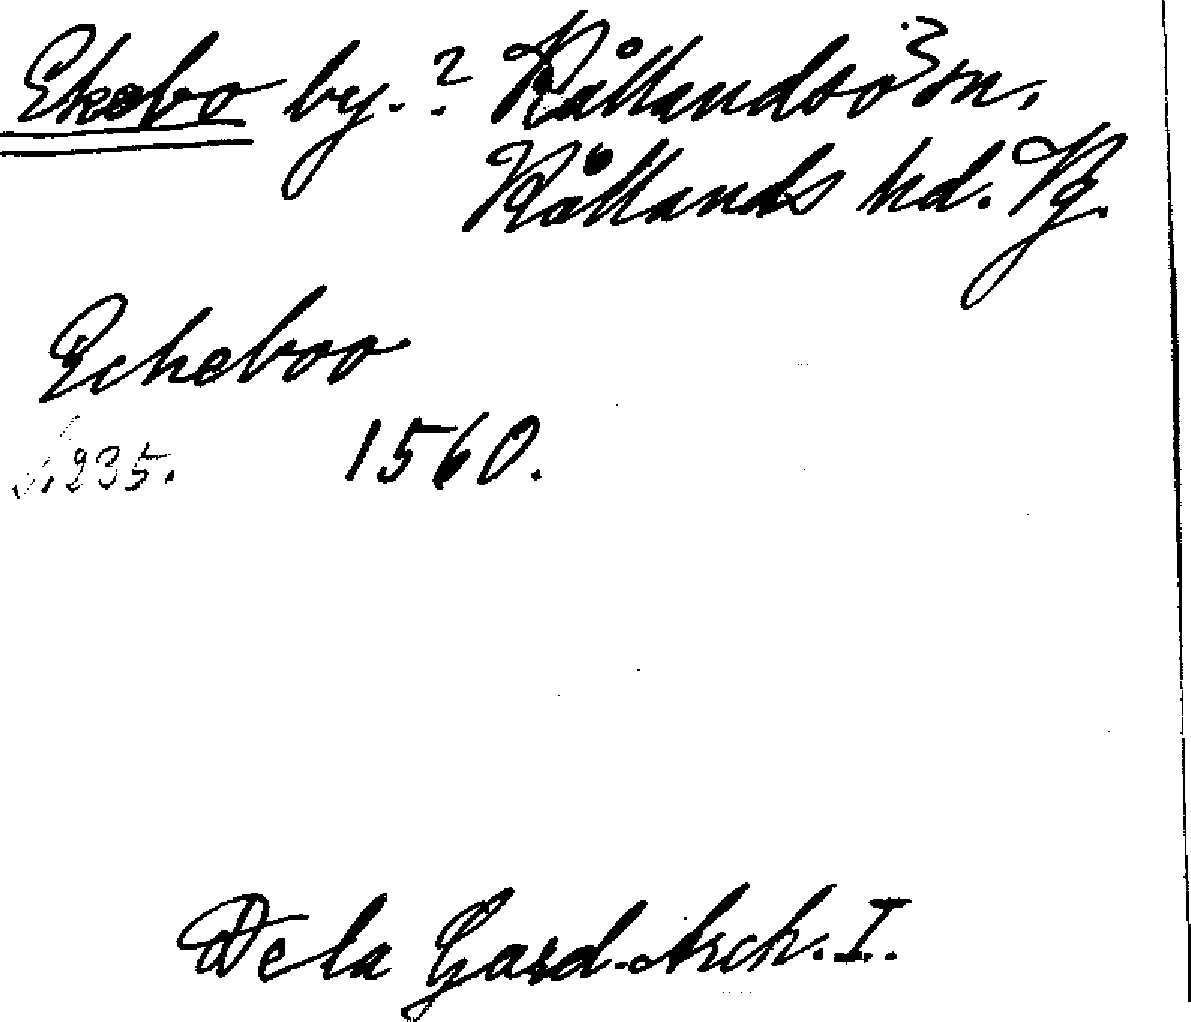 Ekebo by. ? Kållandsö sn.
Kållands hd. Vg.
Eckeboo
s. 235. 1560.
De la Gard. Arch. I.